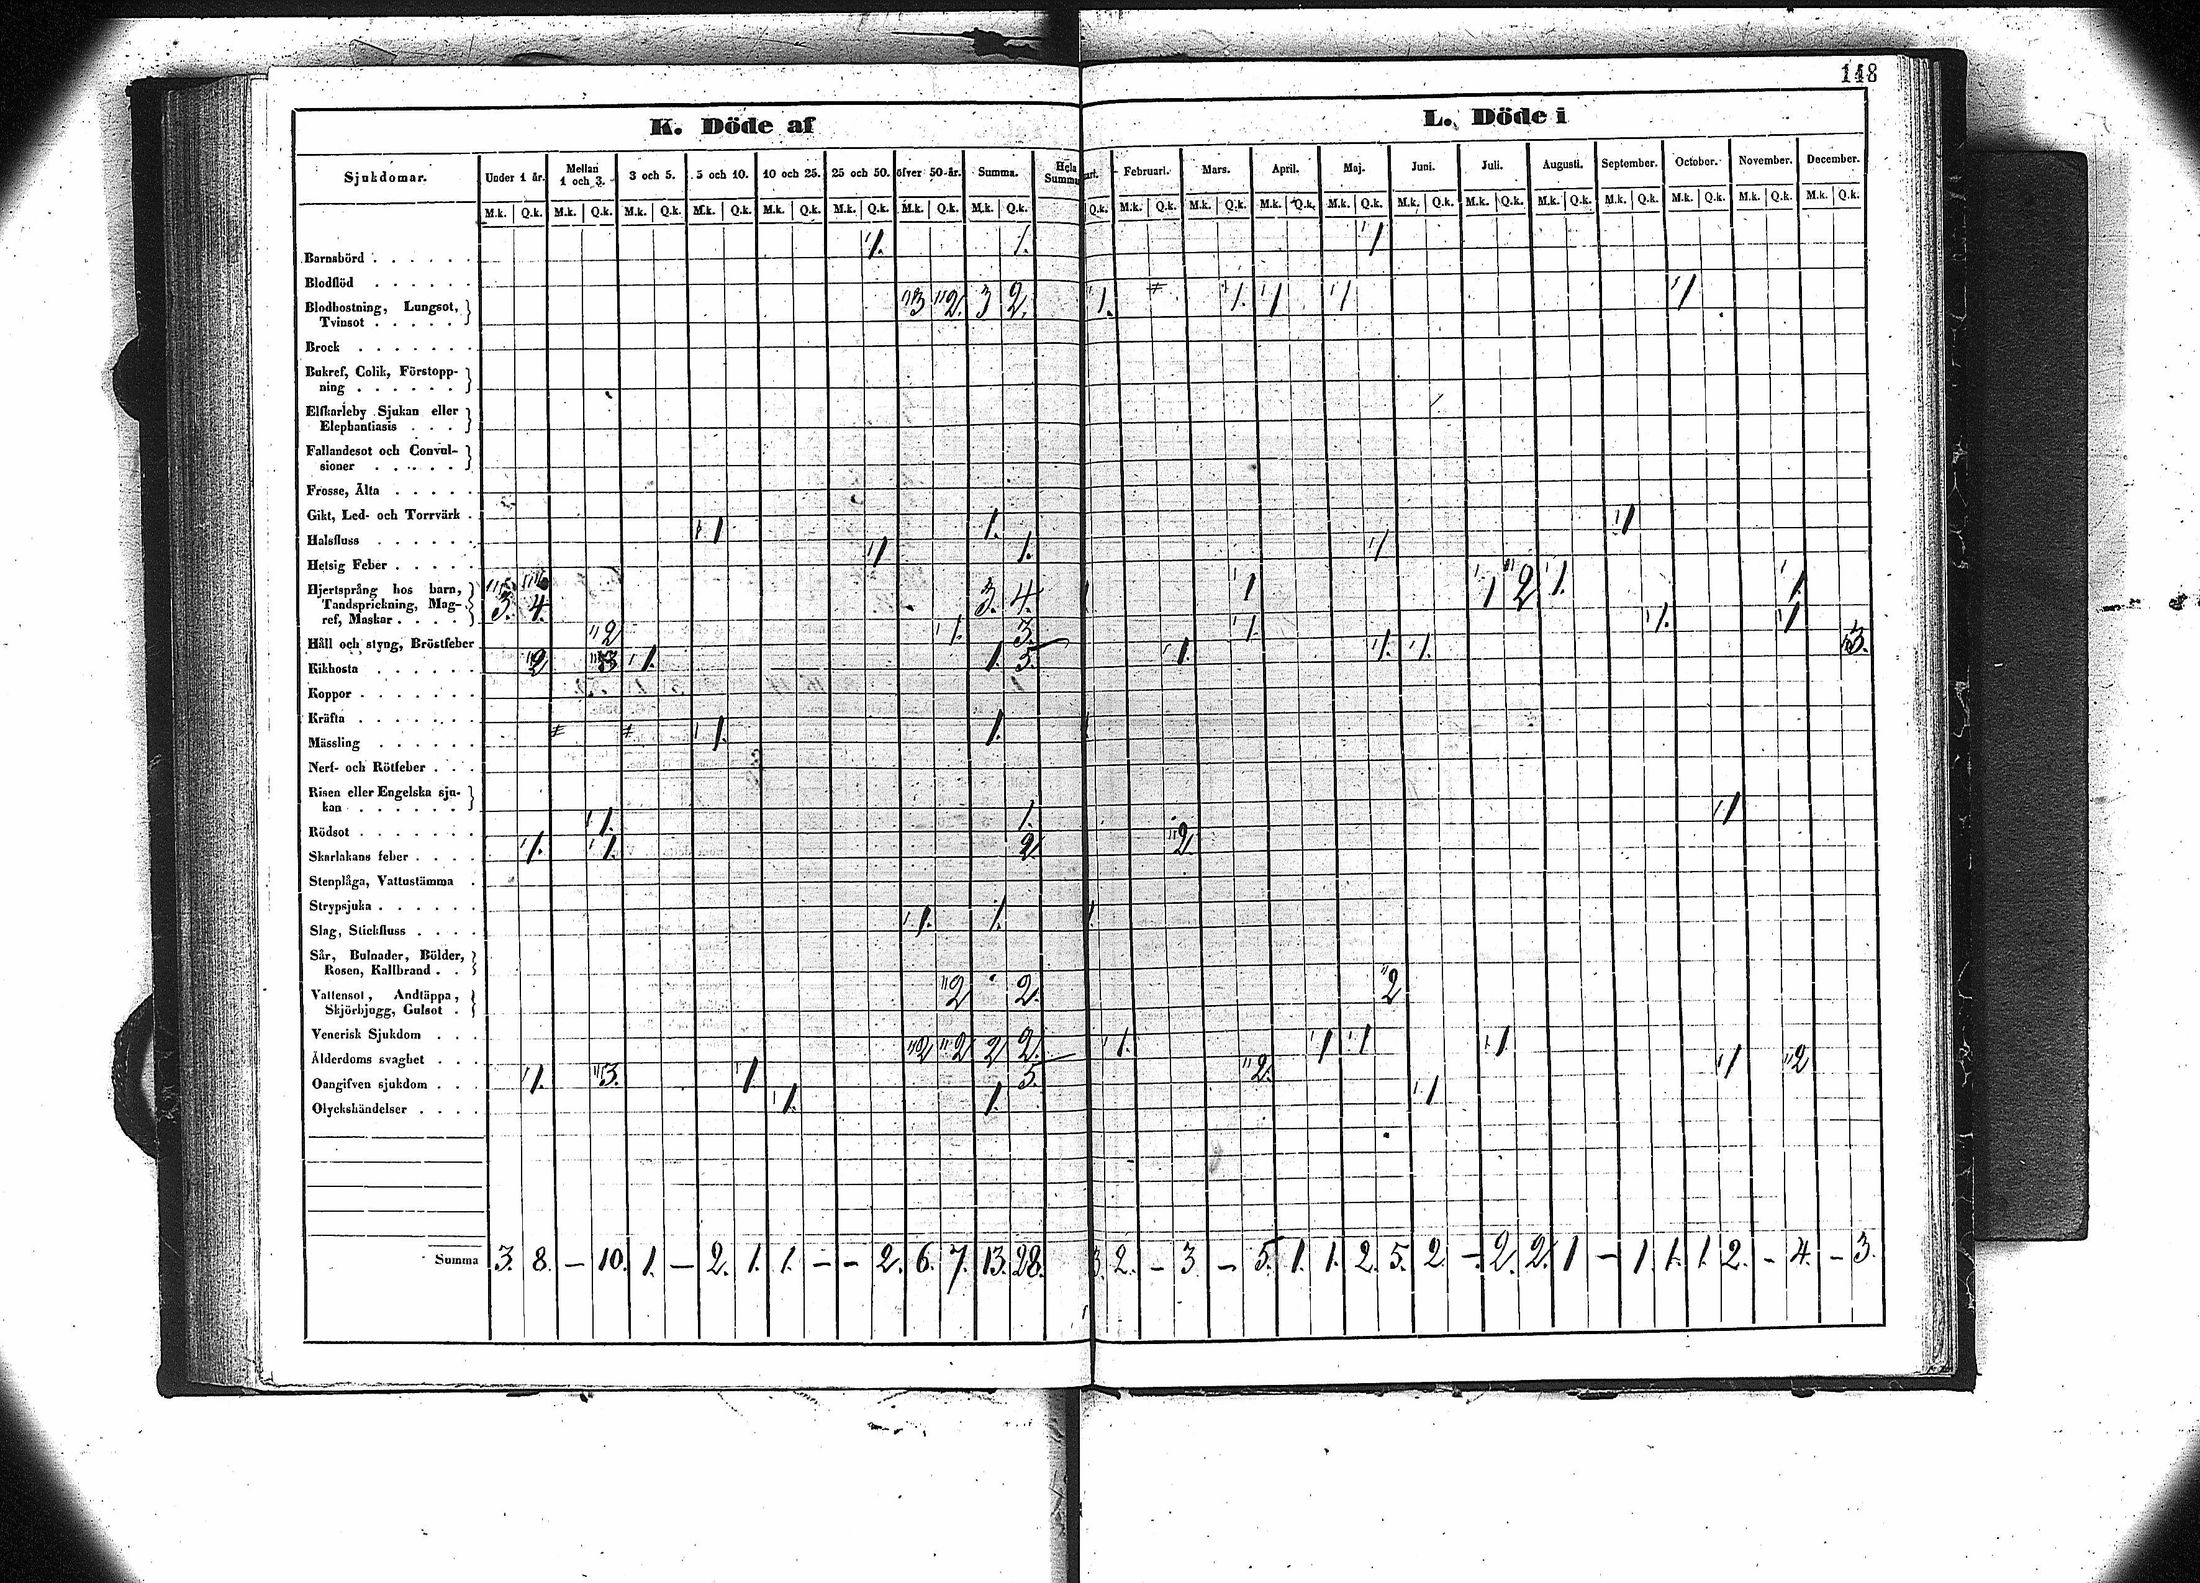 148
K. Döde af
L. Döde i
Sjukdomar. Under 1 år. Mellan 1 och 3. 3 och 5. 5 och 10. 10 och 25. 25 och 50. öfver 50 år. Summa. Hela Summa
M.k. Q.k. M.k. Q.k. M.k. Q.k. M.k. Q.k. M.k. Q.k. M.k. Q.k. M.k. Q.k. M.k. Q.k.
ari. Februari. Mars. April. Maj. Juni. Juli. Augusti. September. October. November. December.
Q.k. M.k. Q.k. M.k. Q.k. M.k. Q.k. M.k. Q.k. M.k. Q.k. M.k. Q.k. M.k. Q.k. M.k. Q.k. M.k. Q.k. M.k. Q.k. M.k. Q.k.
Barnsbörd 1. 1. 1
Blodflöd
Blodhostning, Lungsot,
Tvinsot 3 2. 3 2. 1. 1. 1 1 1
Brock
Bukref, Colik, Förstopp-
ning
Elfkarleby Sjukan eller
Elephantiasis
Fallandesot och Convul-
sioner
Frosse, Älta
Gikt, Led- och Torrvärk
Halsfluss 1 1. 1
Hetsig Feber 1 1. 1
Hjertsprång hos barn,
Tandsprickning, Mag-
ref, Maskar 3. 4. 3. 4. 1 1 2 1. 1.
Håll och styng, Bröstfeber 2 1. 3. 1. 1. 1
Kikhosta 2 3 1. 1. 5 1. 1. 1. 3.
Koppor
Kräfta
Mässling 1. 1.
Nerf- och Rötfeber
Risen eller Engelska sju-
kan
Rödsot 1. 1. 1
Skarlakans feber 1. 1. 2 2
Stenplåga, Vattustämma
Strypsjuka
Slag, Stickfluss 1. 1. 1.
Sår, Bulnader, Bölder,
Rosen, Kallbrand
Vattensot, Andtäppa,
Skjörbjugg, Gulsot 2 2. 2
Venerisk Sjukdom
Ålderdoms svaghet 2 2 2 2. 1. 1 1 1
Oangifven sjukdom 1. 3. 1 5. 2. 1 2
Olyckshändelser 1. 1. 1
Summa 3. 8. – 10. 1. – 2. 1. 1. – – 2. 6. 7. 13. 28. 3. 2. – 3 – 5. 1. 1. 2. 5. 2 – 2. 2. 1 – 1. 1. 1. 2. – 4. – 3.